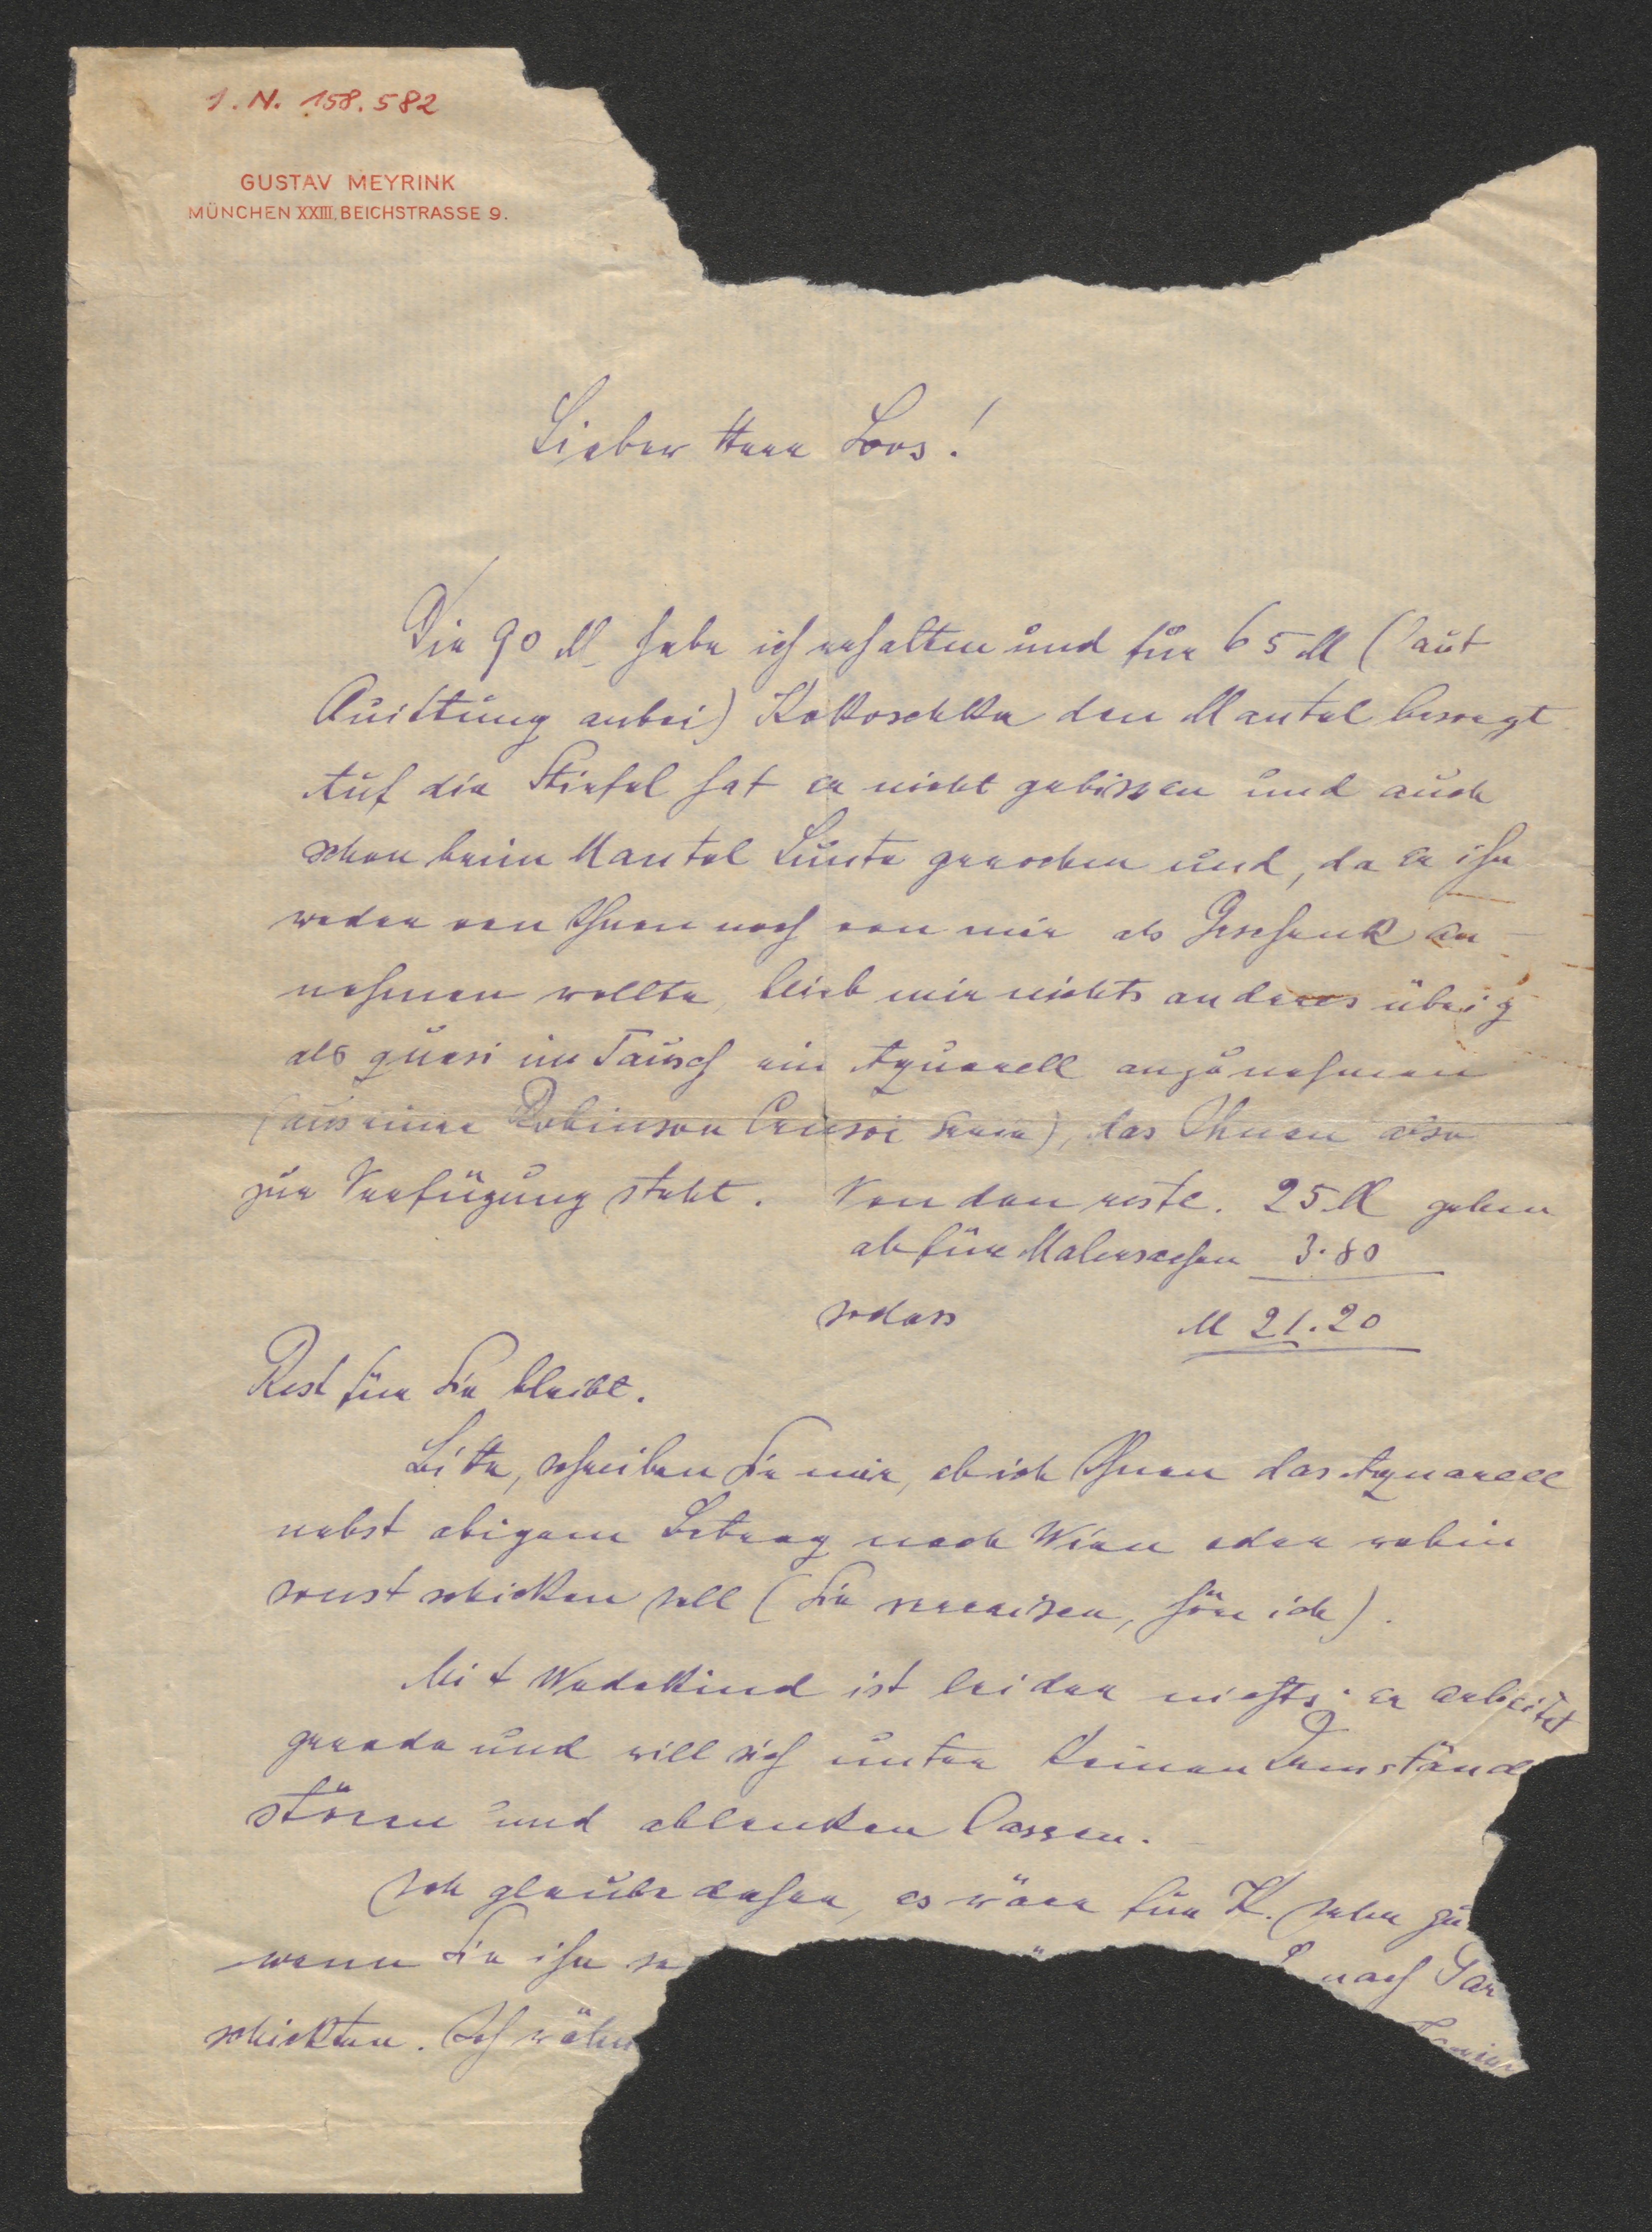 I. N. 158.582
GUSTAV MEYRINK
MÜNCHEN XXIII, BEICHSTRASSE 9.
Lieber Herr Loos!
Die 90 M habe ich erhalten und für 65 M (laut
Quittung anbei) Kokoschka den Mantel besorgt
Auf die Stiefel hat er nicht gebissen und auch
schon beim Mantel Lunte gerochen und, da er ihn
weder von Ihnen noch von mir als Geschenk an
nehmen wollte, blieb mir nichts anderes übrig
als quasi im Tausch ein Aquarell anzunehmen
(aus einer Robinson Crusoi Serie), das Ihnen also
zur Verfügung steht. Von den restl. 25 M gehen
ab für Malersachen 3.80
sodass M 21.20
Rest für Sie bleibt.
Bitte, schreiben Sie mir, ob ich Ihnen das Aquarell
nebst obigem Betrag nach Wien oder wohin
sonst schicken soll (Sie verreisen, höre ich).
Mit Wedekind ist leider nichts; er arbeitet
gerade und will sich unter keinen Umständ
stören und ablenken lassen.
Ich glaube daher, es wäre für K. sehr gu
wenn Sie ihn nach Par
schickten. Ich